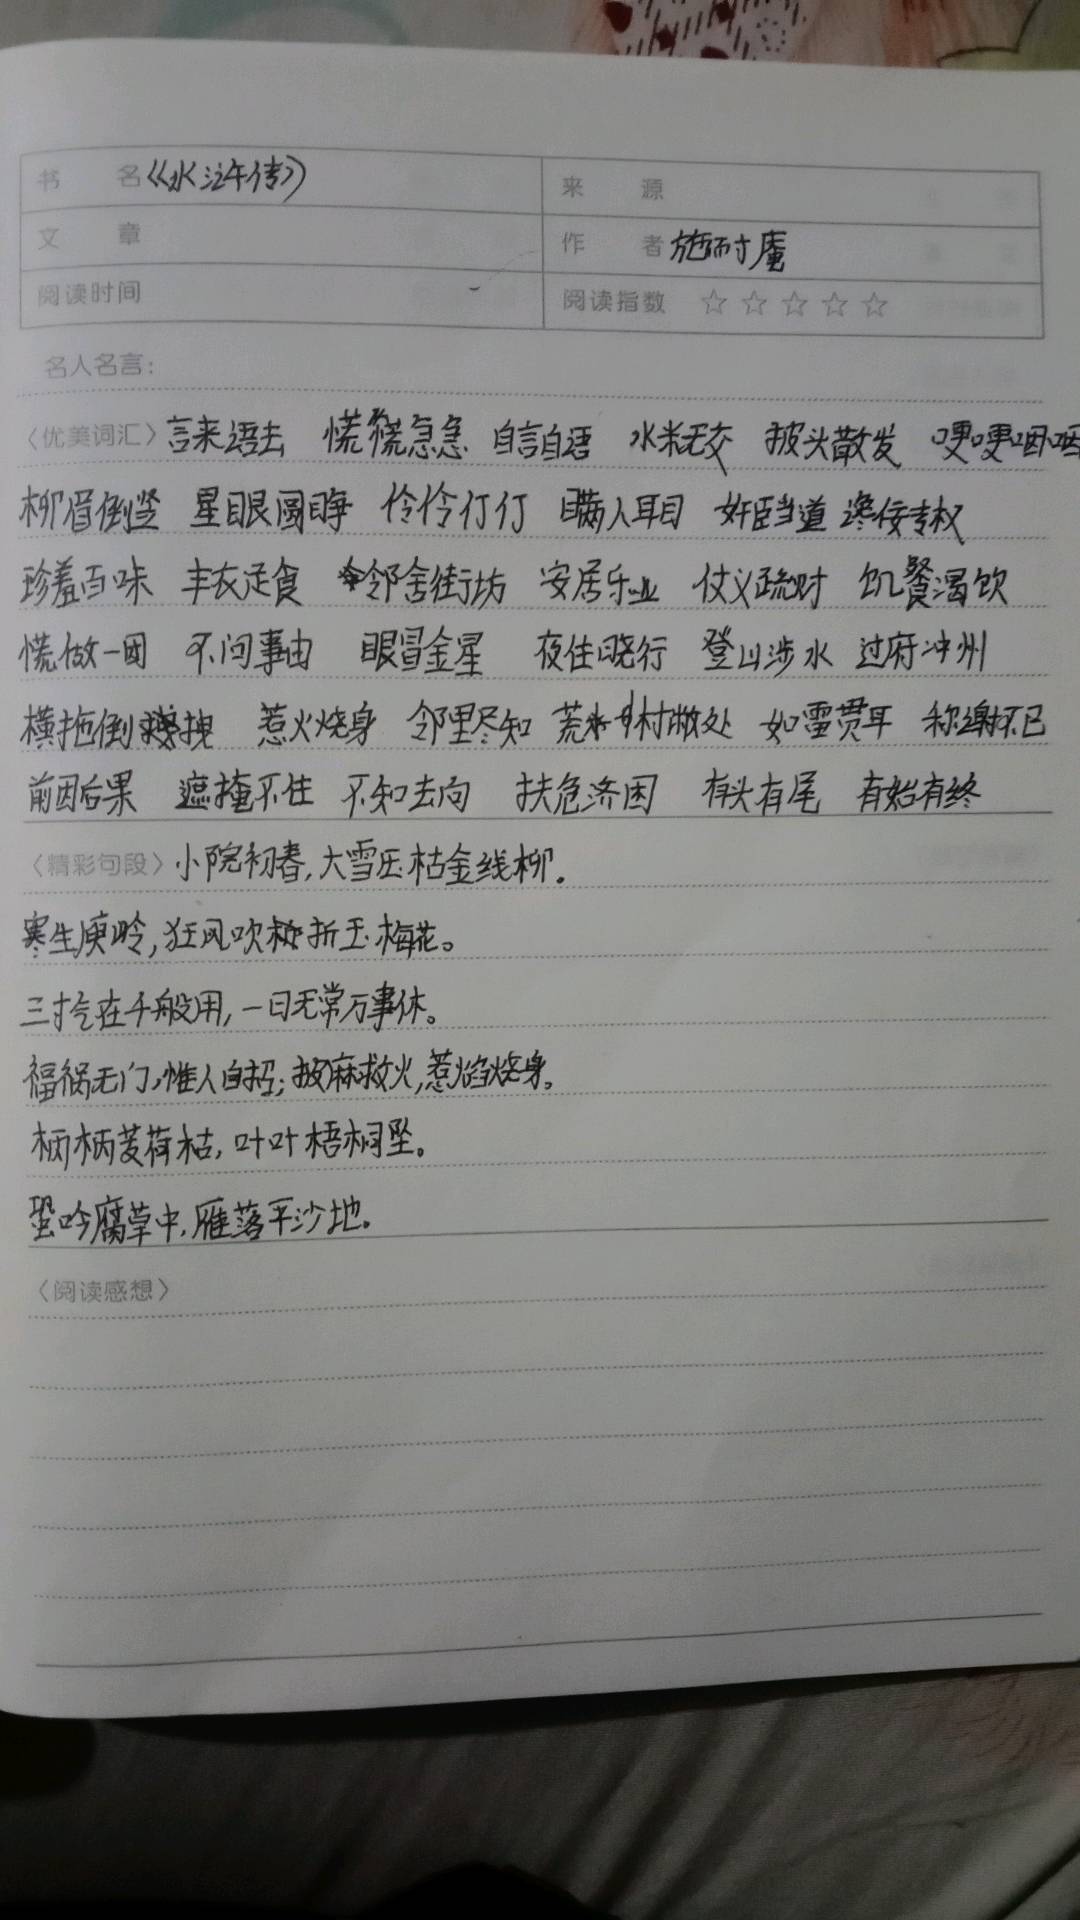 书 名《水浒传》 来 源
文 章 作 者 施耐庵
阅读时间 阅读指数 ☆ ☆ ☆ ☆ ☆
名人名言：
〈优美词汇〉言来语去 慌慌急急 自言自语 水米无交 披头散发 哽哽咽咽
柳眉倒竖 星眼圆睁 伶伶仃仃 瞒人耳目 奸臣当道 谗佞专权
珍羞百味 丰衣足食 邻舍街坊 安居乐业 仗义疏财 饥餐渴饮
慌做一团 不问事由 眼冒金星 夜住晓行 登山涉水 过府冲州
横拖倒拽 惹火烧身 邻里尽知 荒村敞处 如雷贯耳 称谢不已
前因后果 遮掩不住 不知去向 扶危济困 有头有尾 有始有终
〈精彩句段〉小院初春，大雪压枯金线柳。
寒生庾岭，狂风吹折玉梅花。
三寸气在千般用，一日无常万事休。
福祸无门，惟人自招；披麻救火，惹焰烧身。
柄柄芰荷枯，叶叶梧桐坠。
蛩吟腐草中，雁落平沙地。
〈阅读感想〉